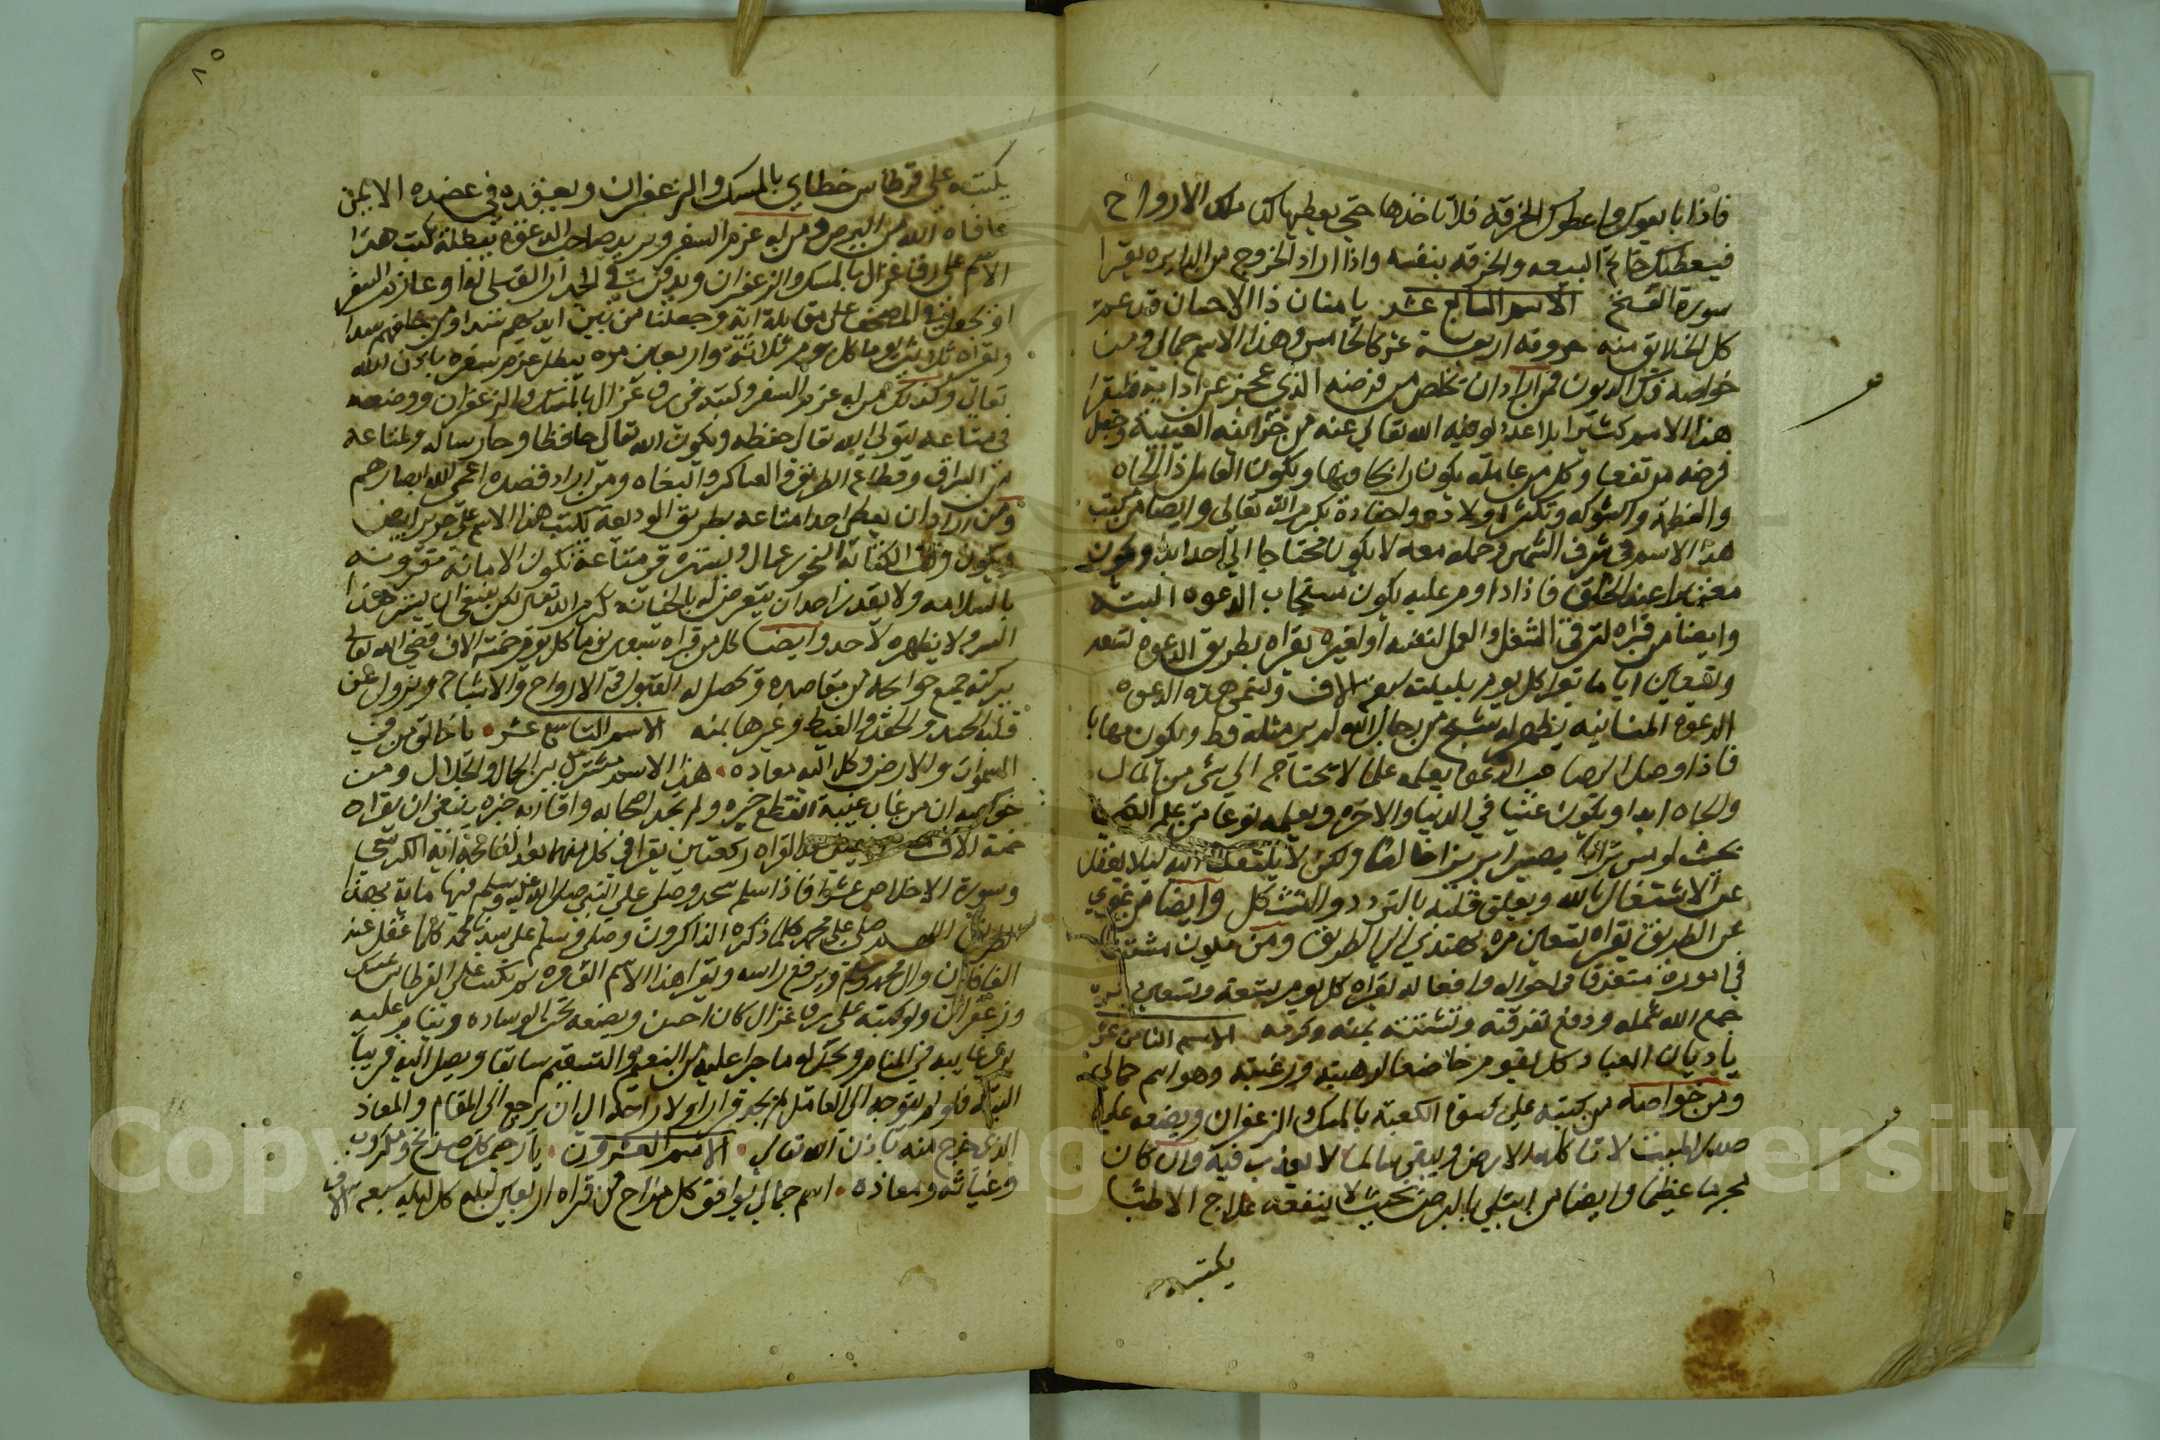 فاذا بايعوك واعطوك الخرقة فلا تاخذها حتى يعطيها لك ملك الارواح
فيعطيك خاتم البيعه والخرقه بنفسه واذا اراد الخروج من الدايره يقرا
سورة الفتح الاسم السابع عشر يا منان ذا الاحسان قد عم
كل الخلايق منه حروفه اربعة عشر كالخامس وهذا الاسم جمالي ومن
خواصه فك الديون فمن اراد ان يخلص من قرضه الذي عجز عن ادايه فليقرا
هذا الاسم كثيرا بلا عدد يوفيه الله تعالى عنه من خزاينه الغيبية ويجعل
قرضه مرتفعا وكل من عامله يكون رابحا ويكون العامل ذا الجاه
والعظمة والشوكه وتكثر اولاده واحفاده بكرم الله تعالى وايضا من كتب
هذا الاسم في شرف الشمس وحمله معه لا يكون محتاجا الى احد ابدا ويكون
معززا عند الخلق فاذا داوم عليه يكون مستجاب الدعوه البتة
وايضا من قراه لترقي الشغل والعمل لنفسه او لغيره يقراه بطريق الدعوه لتسعه
وتسعين اياما كل يوم بليلته سبعة الاف وتسمى هذه الدعوه
الدعوة المنانيه يظهر له شيخ من رجال الله لم ير مثله قط ويكون مهابا
فاذا وصل الى صاحب الدعوه يعلمه علما لا يحتاج الى شي من المال
والجاه ابدا ويكون غنيا في الدنيا والاخره ويعلمه نوعا من علم الكيميا
بحيث لو مس ترابا يصير ابريزا خالصا ولكن لا يلتفت اليه ليلا يغفل
عن الاشتغال بالله ويعلق قلبه بالتردد والتشكل وايضا من غوي
عن الطريق يقراه تسعين مرة يهتدي الى الطريق ومن يكون مشتتا
في اموره متفرقا في احواله وافعاله يقراه كل يوم تسعة وتسعين مرة
جمع الله شمله ودفع تفرقته وتشتته بمنه وكرمه الاسم الثامن عشر
يا ديان العباد كل يقوم خاضعا لرهبته ورغبته وهو اسم جمالي
ومن خواصه من كتبه على كسوة الكعبة بالمسك والزعفران ويضعه على
صدر الميت لا تاكله الارض ويبقى سالما لا يعذب فيه وان كان
مجرما عظيما وايضا من ابتلي بالبرص بحيث لا ينفعه علاج الاطبا
يكتبه
٨٥
يكتبه على قرطاس خطاي بالمسك والزعفران ويعقده في عضده الايمن
عافاه الله من البرص ومن له عزم السفر ويريد صاحب الدعوة يبطله يكتب هذا
الاسم على رق غزال بالمسك والزعفران ويدفن في الجدار القبلي لو اوعاز السفر
او يجعل في المصحف على مقابلة اية وجعلنا من بين ايديهم سدا ومن خلفهم سدا
ويقراه ثلاثين يوما كل يوم ثلاثة واربعين مره يبطل عزم سفره باذن الله
تعالى وكذلك من له عزم السفر وكتبه في رق غزال بالمسك والزعفران ووضعه
في متاعه يتولى الله تعالى حفظه ويكون الله تعالى حافظا وحارسا له ولمتاعه
من السراق وقطاع الطريق والعساكر والبغاه ومن اراد قصده اعمى الله ابصارهم
ومن اراد ان يعطي احدا متاعه بطريق الوديعة يكتب هذا الاسم على حرير ابيض
ويكون وقت الكتابة البخور عمال ويستره في متاعه تكون الامانة مقرونة
بالسلامه ولا يقدر احد ان يتعرض له بالخيانه بكرم الله تعالى لكن ينبغي ان يستر هذا
السر ولا يظهره لاحد وايضا كل من قراه سبعين يوما كل يوم خمسة الاف قضى الله تعالى
ببركته جميع حوايجه من مقاصده وتحصل له القبول في الارواح والاشباح ويزول عن
قلبه الحسد والحقد والغيظ وغيرها بمنه الاسم التاسع عشر يا خالق من في
السموات والارض وكل اليه معاده هذا الاسم مشترك بين الجمال والجلال ومن
خواصه ان من غاب غيبة انقطع خبره ولم يجد اصحابه واقاربه خبره ينبغي ان يقراه
خمسة الاف القراه ركعتين يقرا في كل منهما بعد الفاتحة اية الكرسي
وسورة الاخلاص عشرا فاذا سلم سجد وصلى على النبي صلى الله عليه وسلم فيها ماية بهذا
الطريق اللهم صل على محمد كلما ذكره الذاكرون وصل وسلم على سيدنا محمد كلما غفل عنه
الغافلون وال محمد وسلم ويرفع راسه ويقرا هذا الاسم الف مره ثم يكتب على القرطاس بمسك
وزعفران ولو كتبه على رق غزال كان احسن ويضعه تحت الوساده وينام عليه
يرى غايبه في المنام ويحكي له ما جرا عليه من النعيم والتسقيم سابقا ويصل اليه قريبا
البتة فلو لم يتوجه الى العامل لم يجد قرارا ولا راحة الى ان يرجع الى المقام والمعاذ
الذي خرج منه باذن الله تعالى الاسم العشرون يا رحيم كل صريخ ومكروب
وغياثه ومعاذه اسم جمالي يوافق كل مزاج فمن قراه اربعين ليله كل ليله سبعه الاف